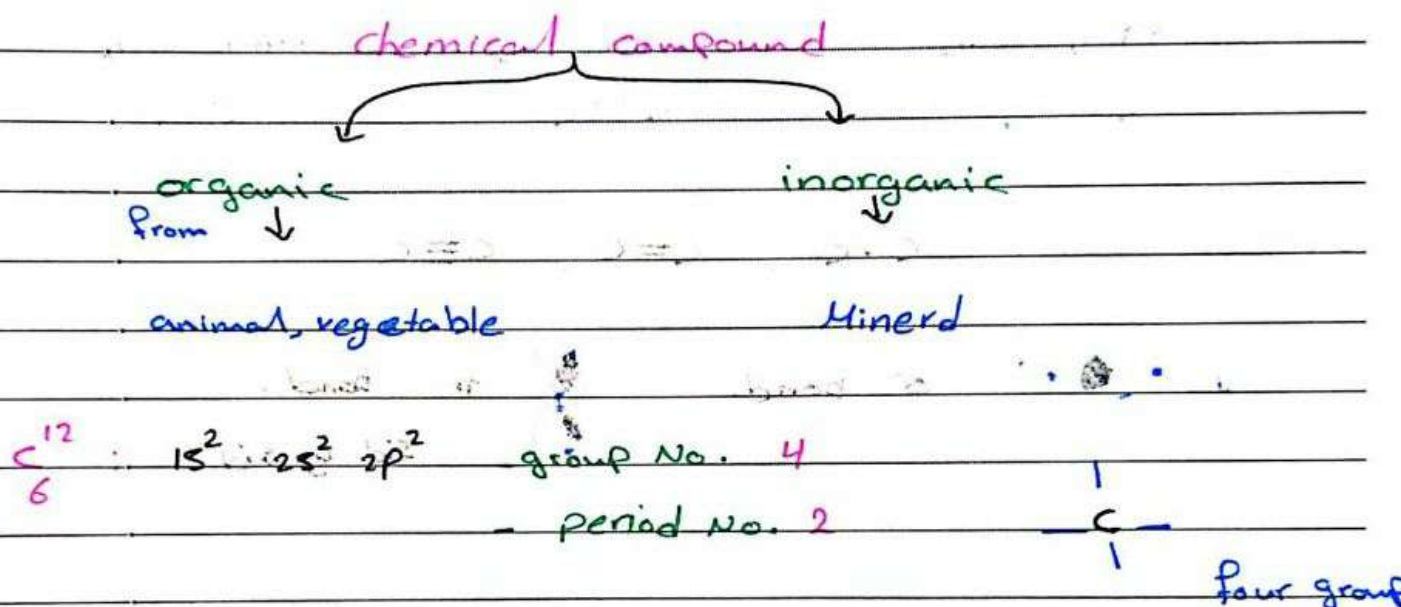 chemical compound
organic inorganic
from
animal, vegetable Minerd
C 12 6 1s² 2s² 2p² group No. 4
- period No. 2 C
four group